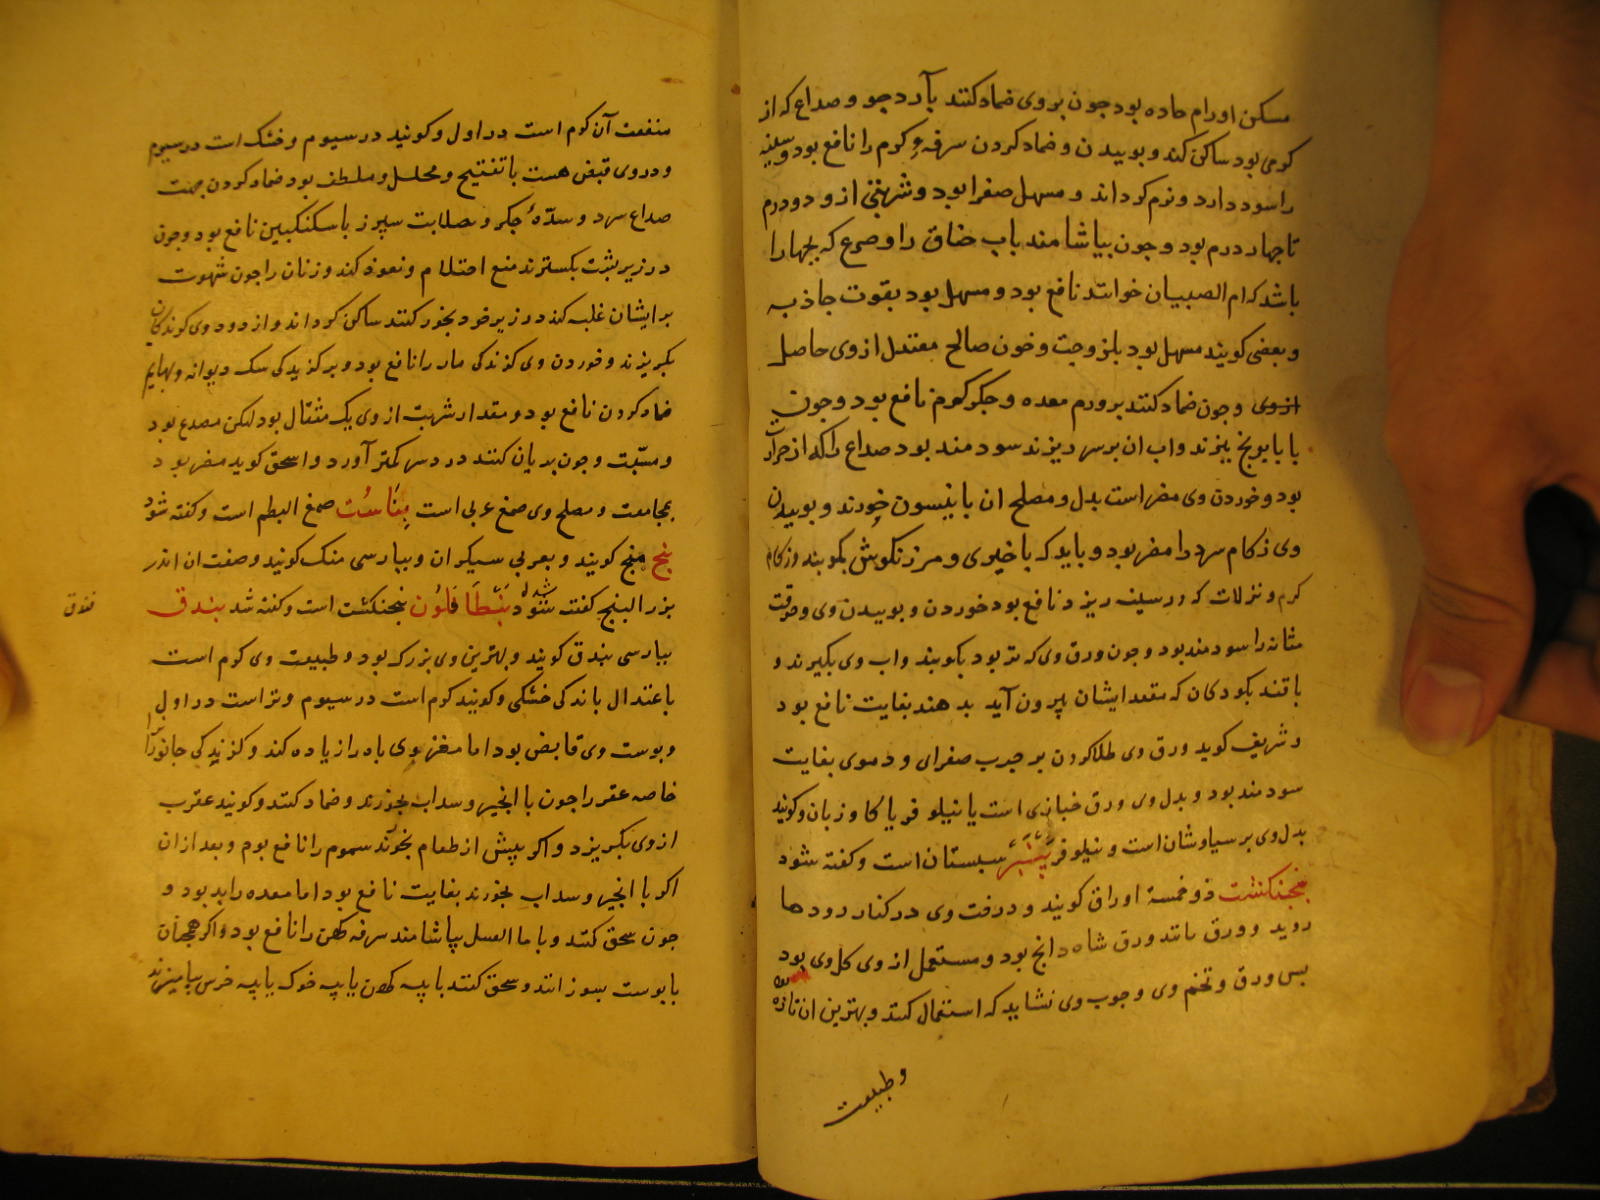 مسکن اورام حاده بود چون بروی ضماد کنند بآرد جو و صداع که از
کرمی بود ساکن کند و بوییدن و ضماد کردن سرفه کرم را نافع بود و سینه
را سود دارد و نرم کرداند و مسهل صفرا بود و شربتی از و دو درم
تا چهار درم بود و چون بیاشامند باب خناق را و صرع که بچها را
باشد که ام الصبیان خوانند نافع بود و مسهل بود بقوت جاذبه
و بعضی کویند مسهل بود بلزوجت و خون صالح معتدل از وی حاصل
از وی و چون ضماد کنند بر ورم معده و جکر کرم نافع بود و چون
با بابونج بپزند و اب ان بر سر ریزند سودمند بود صداع را که از حرارت
بود و خوردن وی مضر است بدل و مصلح ان با نیسون خورند و بوییدن
وی زکام سرد را مضر بود و باید که با خیری و مرزنکوش بکوبند و زکام
کرم و نزلات که در سینه ریزد نافع بود خوردن و بوییدن وی و حرقت
مثانه را سودمند بود و چون ورق وی که تر بود بکوبند و اب وی بکیرند و
با قند بکودکان که مقعد ایشان بیرون آید بدهند بغایت نافع بود
و شریف کوید ورق وی طلا کردن بر جرب صفرای و دموی بغایت
سودمند بود و بدل وی ورق خبازی است یا نیلوفر یا کاو زبان و کویند
بدل وی برسیاوشان است و نیلوفر سبستان است و کفته شود
بنجنکشت ذو خمسة اوراق کویند و درخت وی در کنار رودها
روید و ورق مانند ورق شاه دانج بود و مستعمل از وی کل وی بود
بس ورق و تخم وی و چوب وی نشاید که استعمال کنند و بهترین ان تازه
بود
و طبیعت
منفعت آن کرم است در اول و کویند در سیوم و خشک است در سیوم
و در وی قبض هست با تفتیح و محلل و ملطف بود ضماد کردن جهت
صداع سرد و سدّهٔ جکر و صلابت سپرز با سکنکبین نافع بود و چون
در زیر بشت بکسترند منع احتلام و نعوذ کند و زنان را چون شهوت
بر ایشان غلبه کند در زیر خود بخور کنند ساکن کرداند و از دود وی کزندکان
بکریزند و خوردن وی کزندکی مار را نافع بود و بر کزیدکی سک دیوانه و بهایم
ضماد کردن نافع بود و مقدار شربت از وی یک مثقال بود لیکن مصدع بود
و مسّبت و چون بریان کنند درد سر کمتر آورد و اسحق کوید مضر بود
بمجامعت و مصلح وی صمغ عربی است بناست صمغ البطم است و کفته شود
بنج منج کویند و بعربی سیکران و ببارسی منک کویند و صفت ان اندر
بزر البنج کفته شود بنطافلون بنجنکشت است و کفته شد بندق
شده
فندق
ببارسی بندق کویند و بهترین وی بزرک بود و طبیعت وی کرم است
باعتدال باندکی خشکی و کویند کرم است در سیوم و تر است در اول
و بوست وی قابض بود اما مغز وی باه را زیاده کند و کزیدکی جانوران را
خاصه عقرب را چون با انجیر و سداب بخورند و ضماد کنند و کویند عقرب
از وی بکریزد و اکر بیش از طعام بخورند سموم را نافع بوم و بعد از ان
اکر با انجیر و سداب بخورند بغایت نافع بود اما معده را بد بود و
چون سحق کنند و با ما العسل بیاشامند سرفه کهن را نافع بود و اکر همچنان
با بوست بسوزانند و سحق کنند با پیه کهن یا پیه خوک یا پیه خرس بیامیزند